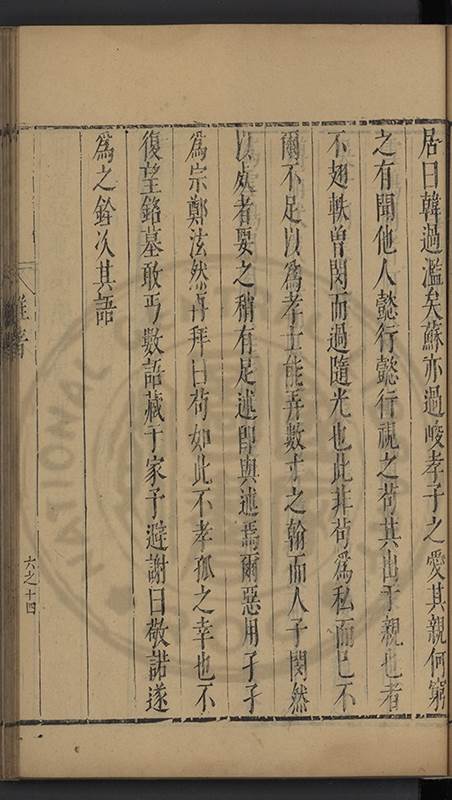 居曰韓過濫矣蘇亦過峻孝子之愛其親何窮
之有聞他人懿行懿行視之苟其出于親也者
不翅軼曾閔而過隨光也此非苟為私而已不
爾不足以為孝士能弄數寸之翰而人子閔然
以處者要之稍有足述即與述焉爾惡用孑孑
為宗鄭泫然再拜曰苟如此不孝孤之幸也不
復望銘墓敢丐數語藏于家予避謝曰敬諾遂
為之銓次其語
六之十四